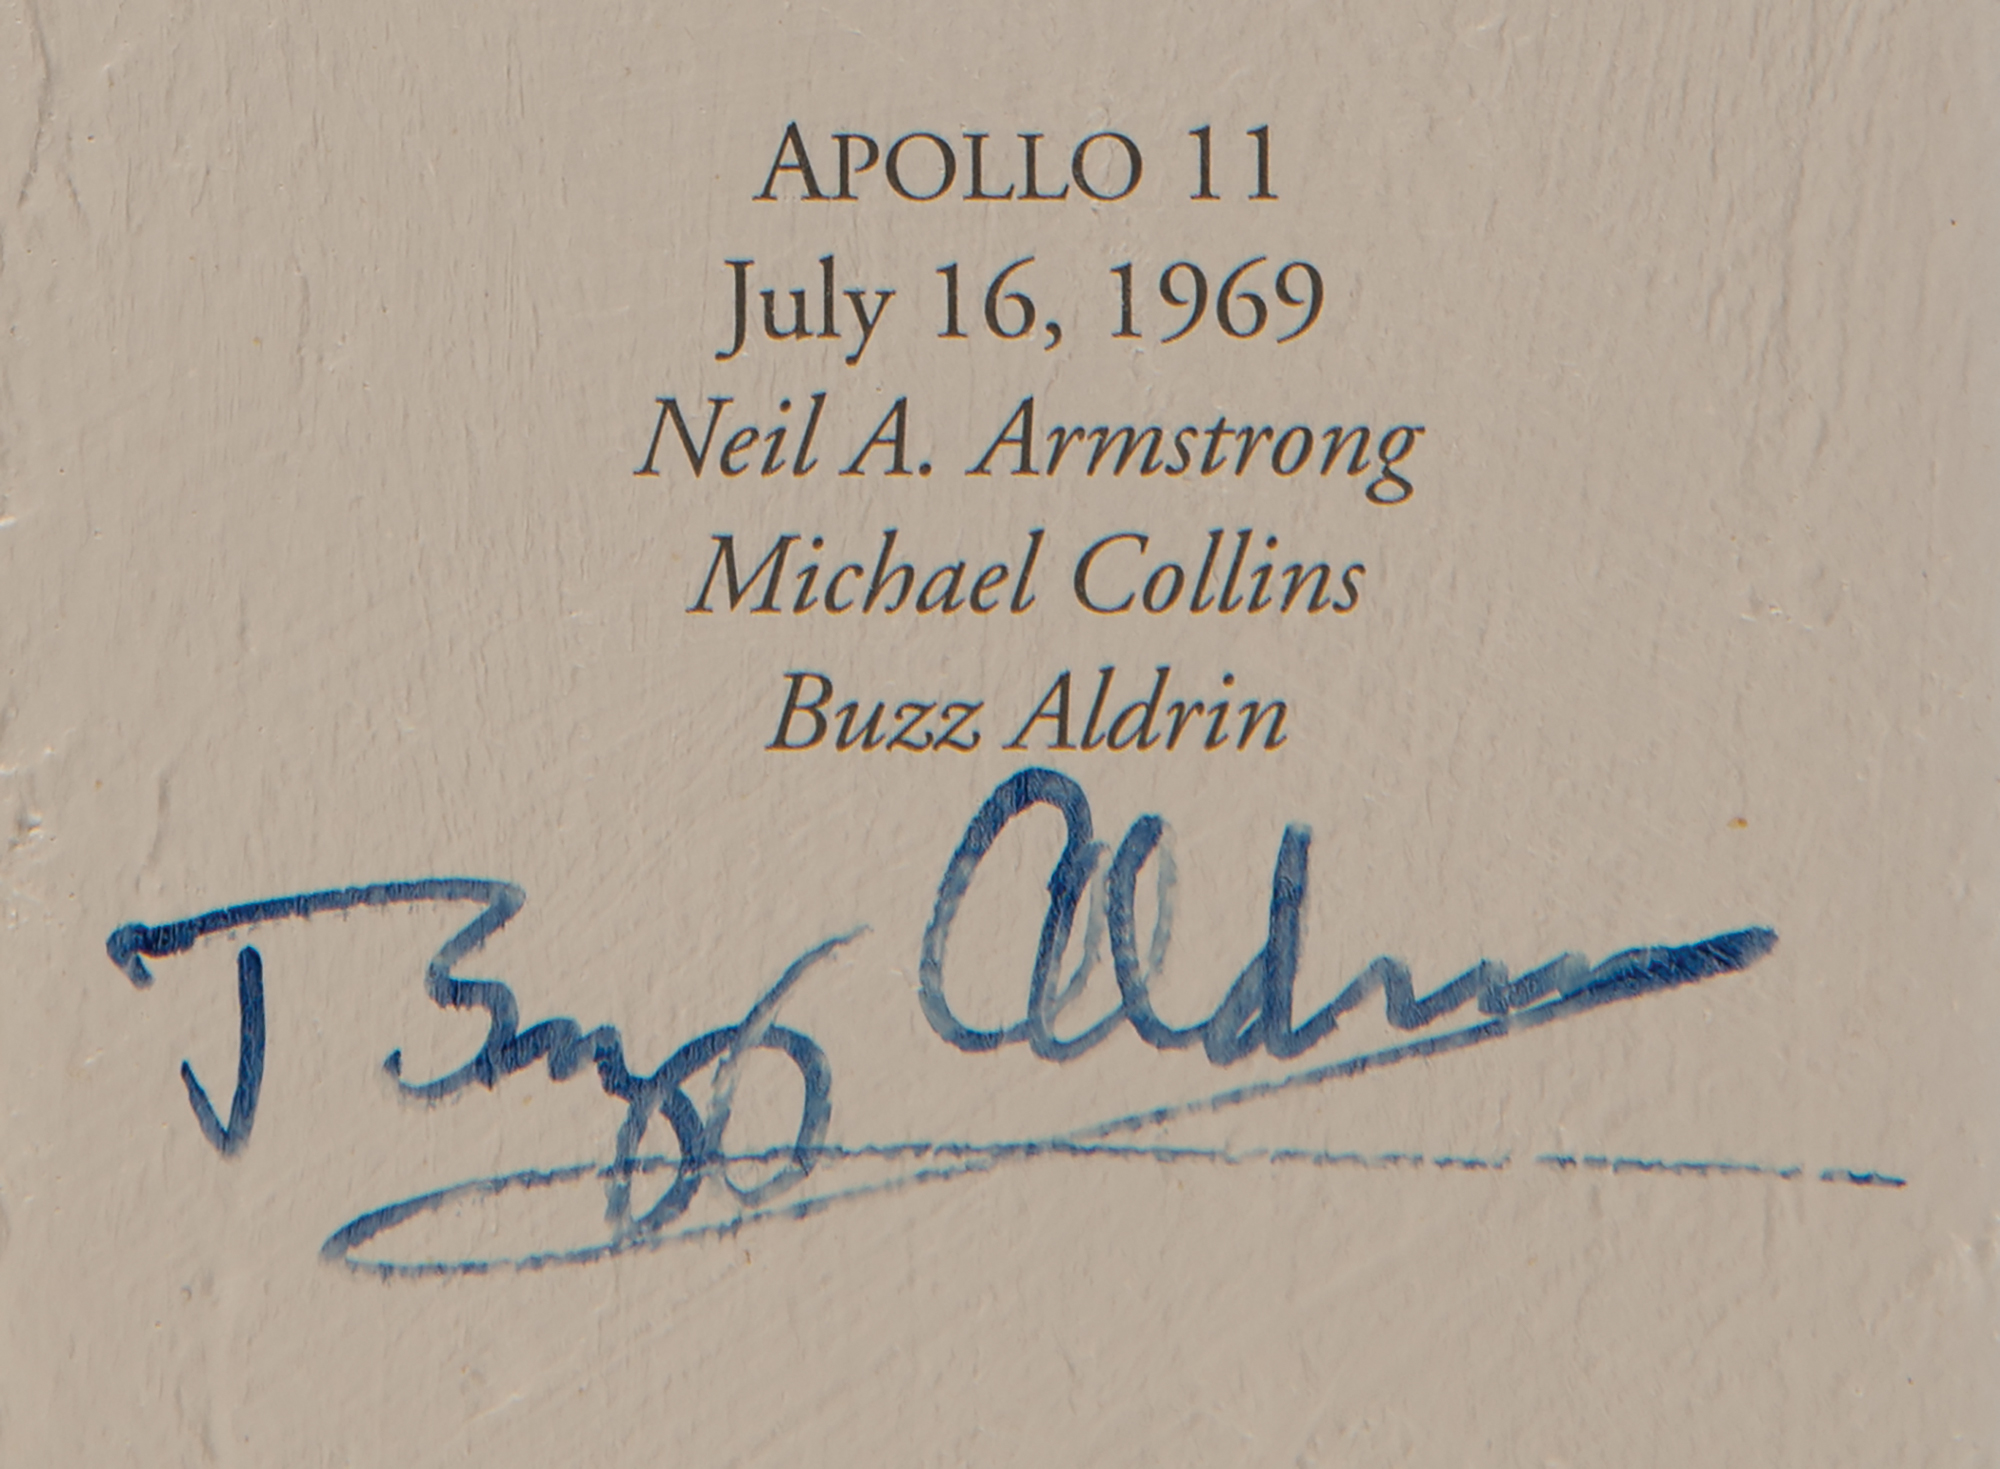 APOLLO 11
July 16, 1969
Neil A. Armstrong
Michael Collins
Buzz Aldrin
Buzz Aldrin